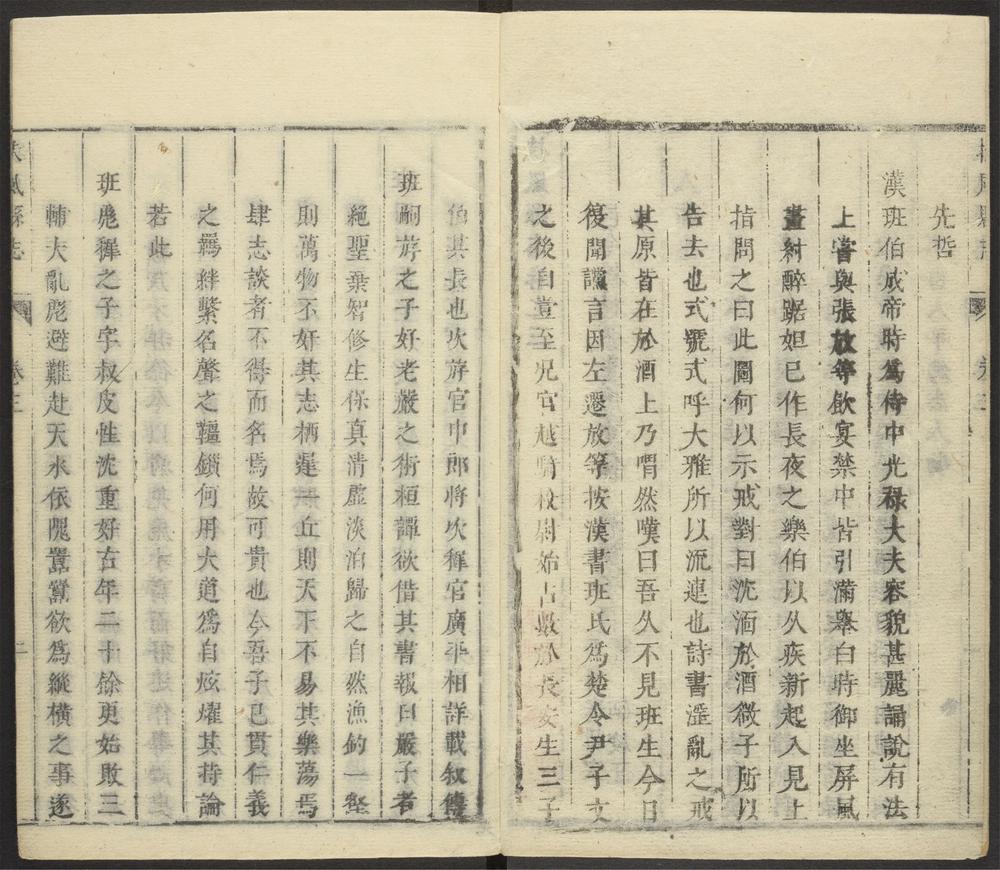 先哲
漢班伯成帝時爲侍中光祿大夫容貌甚麗誦說有法
上嘗與張放等飲宴禁中皆引滿舉白時御坐屏風
畫紂醉踞妲己作長夜之樂伯以久疾新起入見上
指問之曰此圖何以示戒對曰沈湎於酒微子所以
告去也式號式呼大雅所以流連也詩書淫亂之戒
其原皆在於酒上乃喟然嘆曰吾久不見班生今日
復聞讜言因左遷放等按漢書班氏爲楚令尹子文
之後自壹至況官越騎校尉始占數於長安生三子
伯其長也次斿官中郎將次穉官廣平相詳載叙傳
班嗣斿之子好老嚴之術桓譚欲借其書報曰嚴子者
絕聖棄智修生保真清虛淡泊歸之自然漁釣一壑
則萬物不奸其志栖遲一丘則天下不易其樂蕩焉
肆志談者不得而名焉故可貴也今吾子已貫仁義
之羈絆繫名聲之韁鎖何用大道爲自炫燿其持論
若此
班彪穉之子字叔皮性沈重好古年二十餘更始敗三
輔大亂彪避難赴天水依隗囂囂欲爲縱橫之事遂
扶風縣志
卷三
二